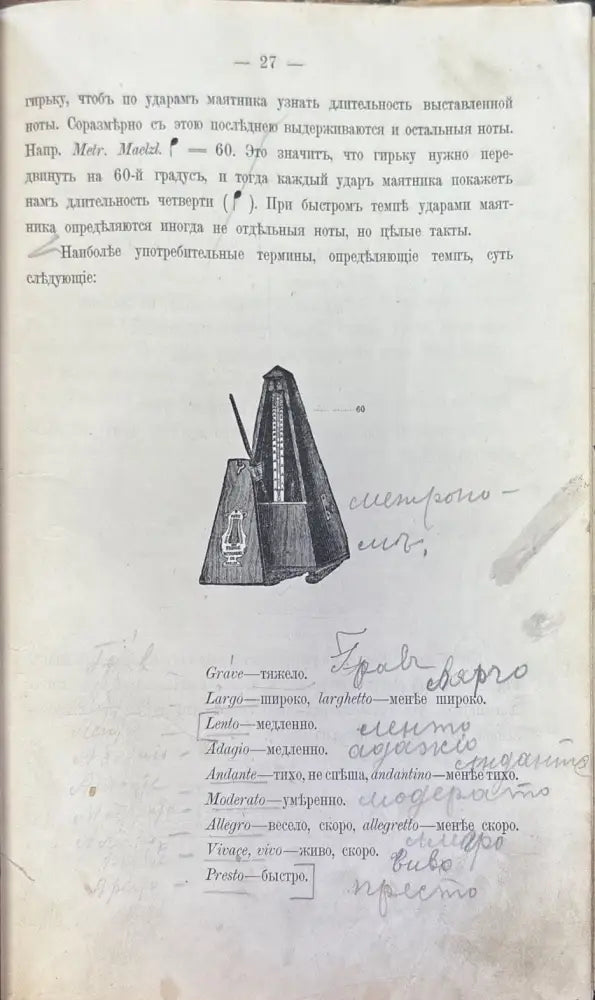 — 27 —
гирьку, чтобъ по ударамъ маятника узнать длительность выставленной
ноты. Соразмѣрно съ этою послѣднею выдерживаются и остальныя ноты.
Напр. Metr. Maelzl. = 60. Это значитъ, что гирьку нужно пере-
двинуть на 60-й градусъ, и тогда каждый ударъ маятника покажетъ
намъ длительность четверти ( ). При быстромъ темпѣ ударами маят-
ника опредѣляются иногда не отдѣльныя ноты, но цѣлые такты.
Наиболѣе употребительные термины, опредѣляющіе темпъ, суть
слѣдующіе:
60
метроно-
мъ,
Grave—тяжело. Гравъ
Ларго
Largo—широко, larghetto—менѣе широко.
Lento—медленно. ленто
Adagio—медленно. адажіо
андантѣ
Andante—тихо, не спѣша, andantino—менѣе тихо.
Moderato—умѣренно. модерато
Allegro—весело, скоро, allegretto—менѣе скоро.
Vivace, vivo—живо, скоро. виво
Presto—быстро. престо